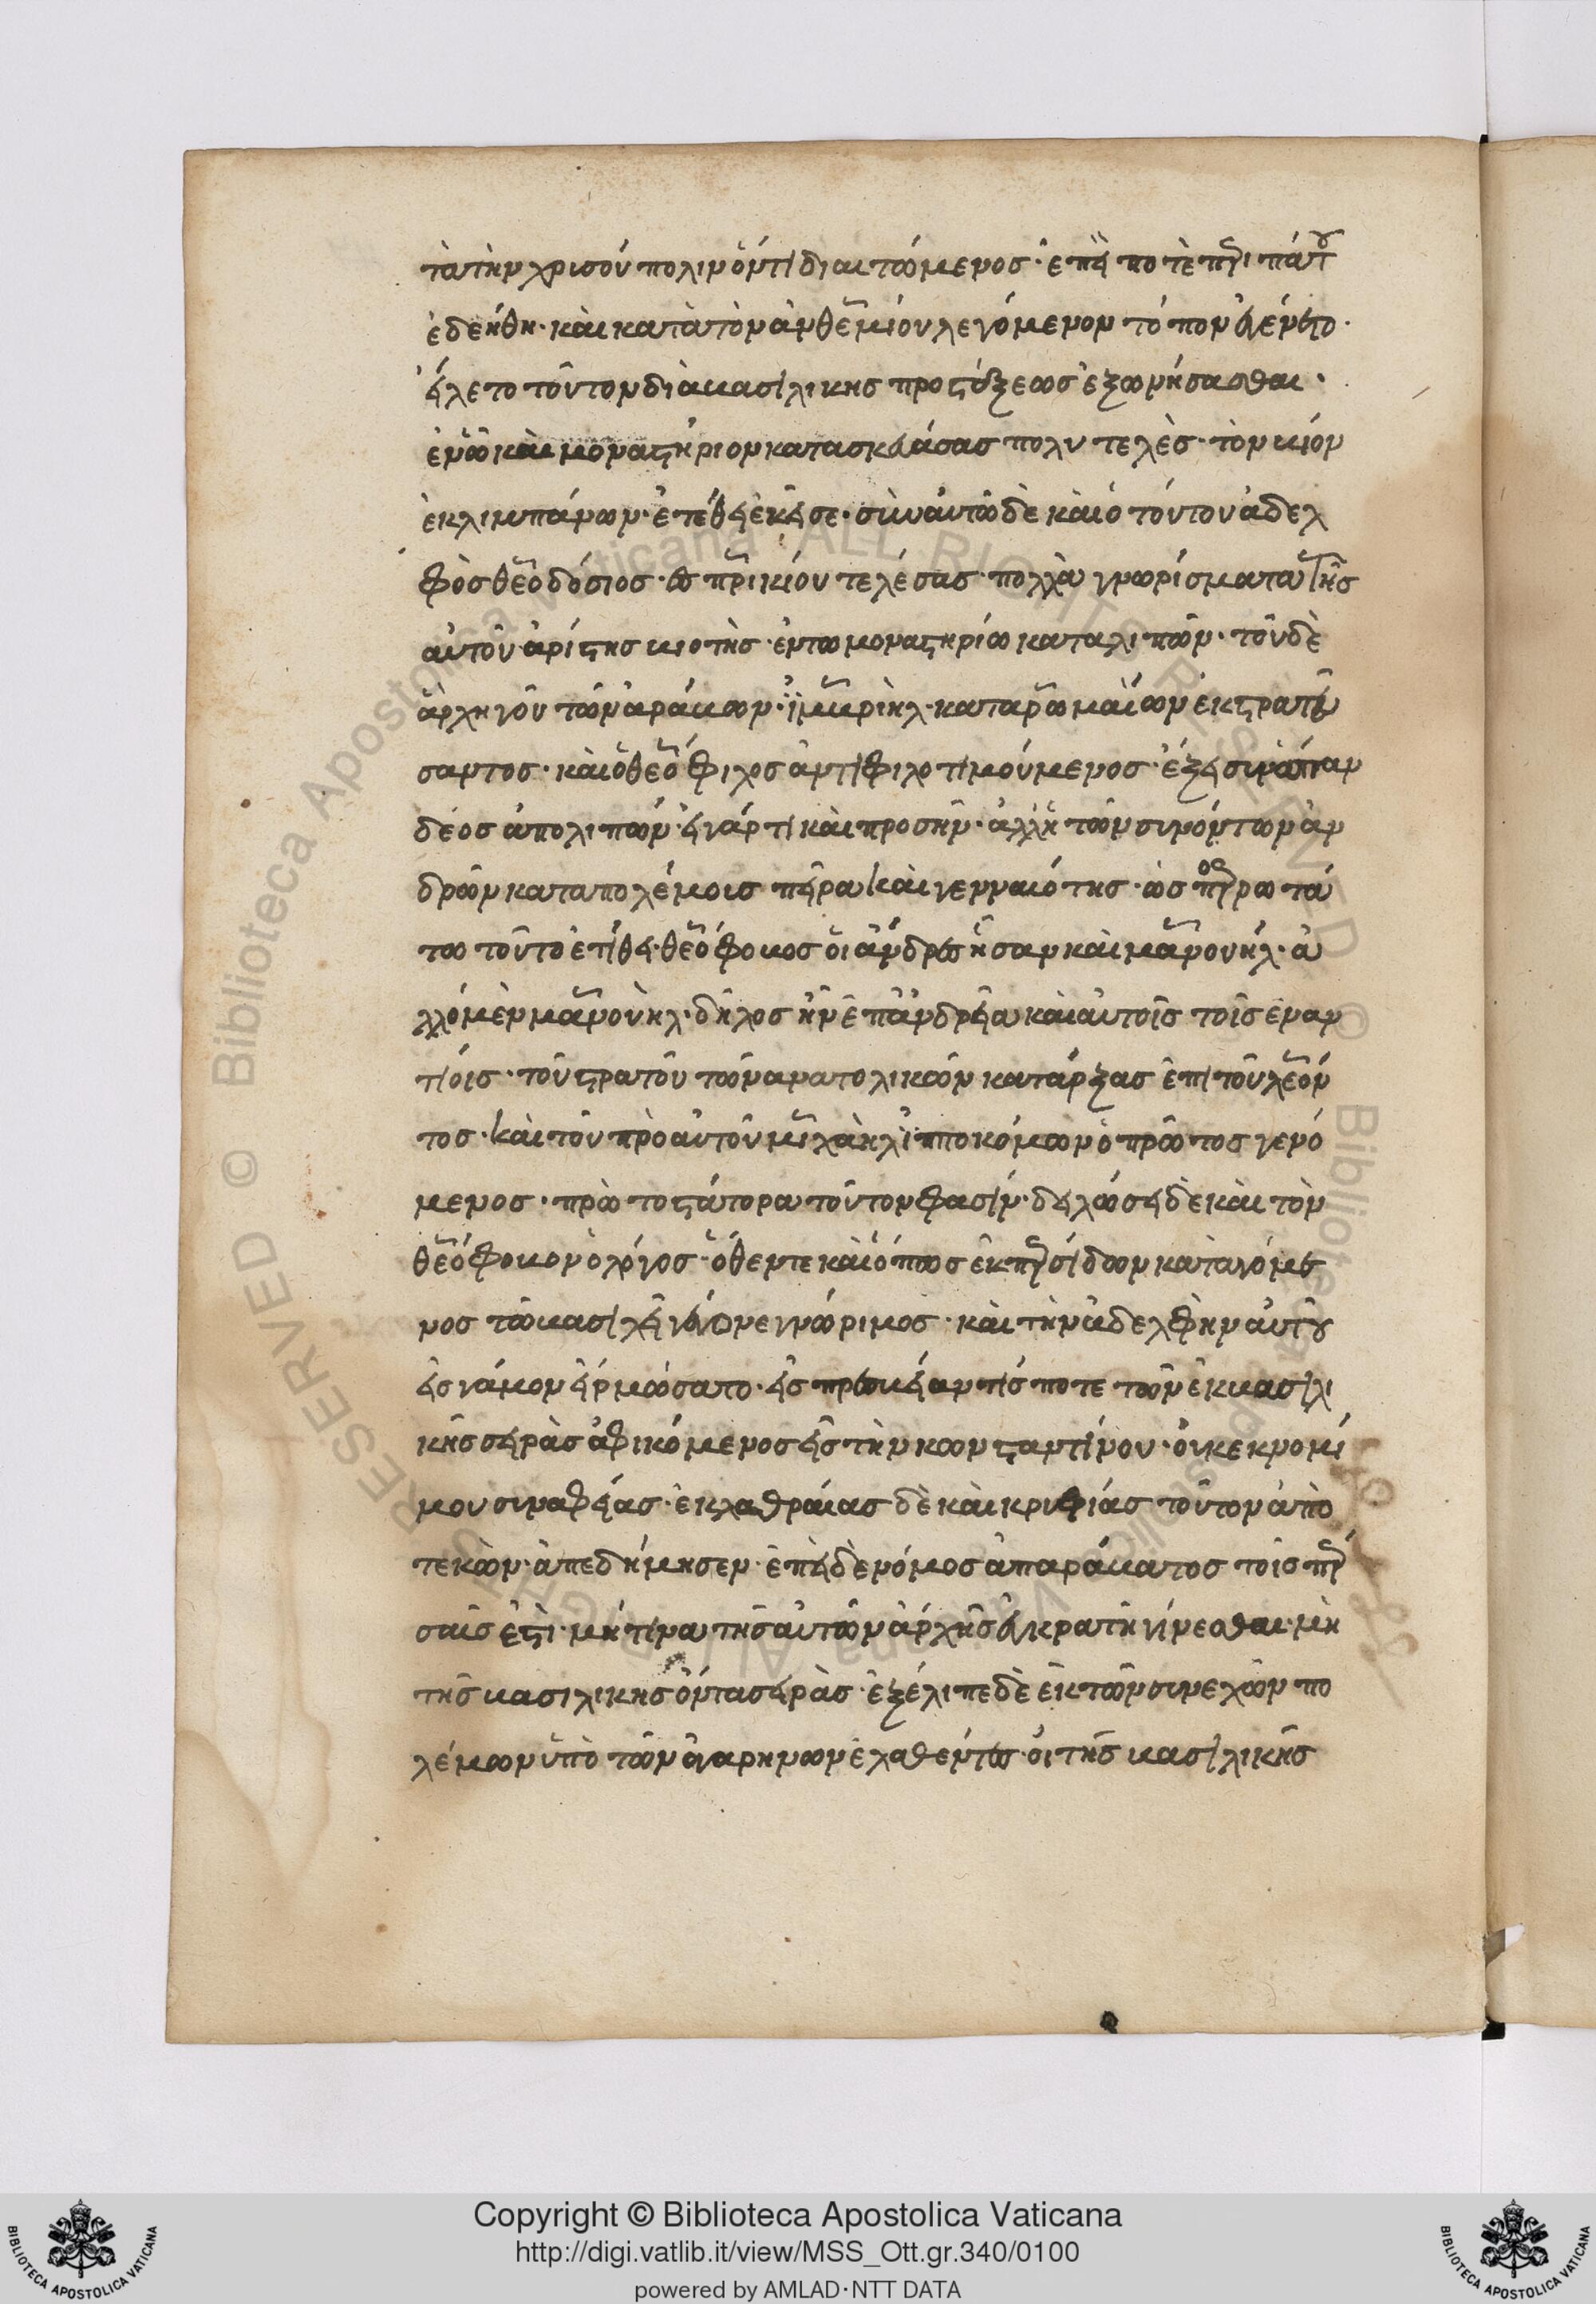 τὰ τὴν χρισού πολιν ὄντι διαιτώμενος· ἐπεὶ ποτὲ περιπάτου
ἐδεήθη· καὶ κατὰ τὸν ἀνθεμίου λεγόμενον τόπον ἐγένετο·
εἵλετο τοῦτον διὰ βασιλικης προστάξεως ἐξωνήσασθαι·
ἐν ᾧ καὶ μοναστήριον κατασκευάσας πολυτελὲς· τὸν βίον
ἐκλιμπάνων· ἐτέθει ἐκεῖσε· σὺν αὐτῶ δὲ καὶ ὁ τούτου ἀδελ
φὸς θεοδόσιος· ἐς πατρικίου τελέσας· πολλὰ γνωρίσματα τῆς
αὐτοῦ ἀρίστης βιοτῆς· ἐν τω μοναστηρίω καταλιπῶν· τοῦ δὲ
ἀρχηγοῦ τῶν ἀράβων· ἰμβραὴλ· κατα ρωμαίων ἐκστρατεύ
σαντος· καὶ ὁ θεόφιλος ἀντιφιλοτιμούμενος· ἔξεισιν ἅπαν
δέος ἀπολιπών· εἰ γάρ τι καὶ προσῆν· ἀλλ' ἡ τῶν συνόντων ἀν
δρῶν κατα πολέμοις πεῖρα καὶ γενναιότης· ὡς πορρωτά
τω τοῦτο ἐτίθει· θεόφοβος οἱ ἄνδρες ἦσαν καὶ μανουήλ· ἀ
λλ' ὁ μὲν μανουὴλ· δῆλος ἦν ἐπ' ἀνδρεία καὶ αὐτοῖς τοῖς ἐναν
τίοις· τοῦ στρατοῦ τῶν ἀνατολικῶν κατάρξας ἐπὶ τοῦ λέον
τος· καὶ τοῦ πρὸ αὐτοῦ μιχαὴλ ἱπποκόμων ὁ πρῶτος γενό
μενος· πρωτοστάτορα τοῦτον φασίν· δηλώσει δὲ καὶ τὸν
θεόφοβον ὁ λόγος· ὅθεν τε καὶ ὅπως ἐκ περσίδων καταγόμε
νος τῶ βασιλεῖ γέγονε γνώριμος· καὶ τὴν ἀδελφὴν αὐτοῦ
εἰς γάμον εἱρμώσατο· εἰς πρεσβείαν τίς ποτε τῶν ἐκ βασιλι
κῆς σειρᾶς ἀφικόμενος εἰς τὴν κωνσταντίνου· οὐκ ἐκ νομί
μου συναφείας· ἐκ λαθραίας δὲ καὶ κρυφίας τοῦτον ἀπο
τεκὼν· ἀπεδήμησεν· ἐπεὶ δὲ νόμος ἀπαράβατος τοῖς πέρ
σαις ἐστὶ· μή τινα τῆς αὐτῶν ἀρχῆς ἐγκρατῆ γίνεσθαι· μὴ
τῆς βασιλικῆς ὄντα σειρᾶς· ἐξέλιπε δὲ ἐκ τῶν συνεχῶν πο
λέμων ὑπὸ τῶν ἀγαρηνῶν ἐλαθέντες οἱ τῆς βασιλικῆς
Copyright © Biblioteca Apostolica Vaticana
http://digi.vatlib.it/view/MSS_Ott.gr.340/0100
powered by AMLAD·NTT DATA